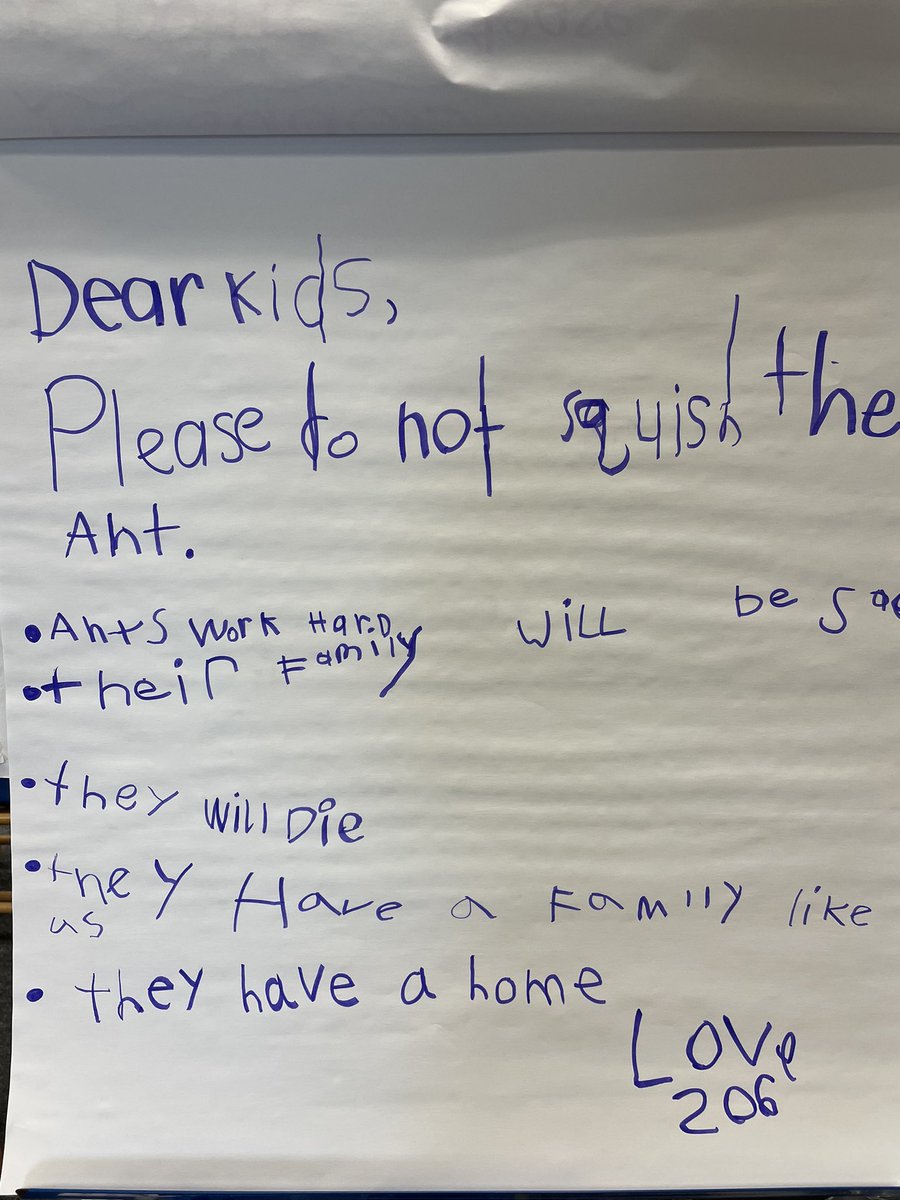 Dear kids,
Please do not squish the
Ant.
• Ants work Hard
• their Family will be
• they will Die
• they Have a Family like
us
• they have a home
Love
206